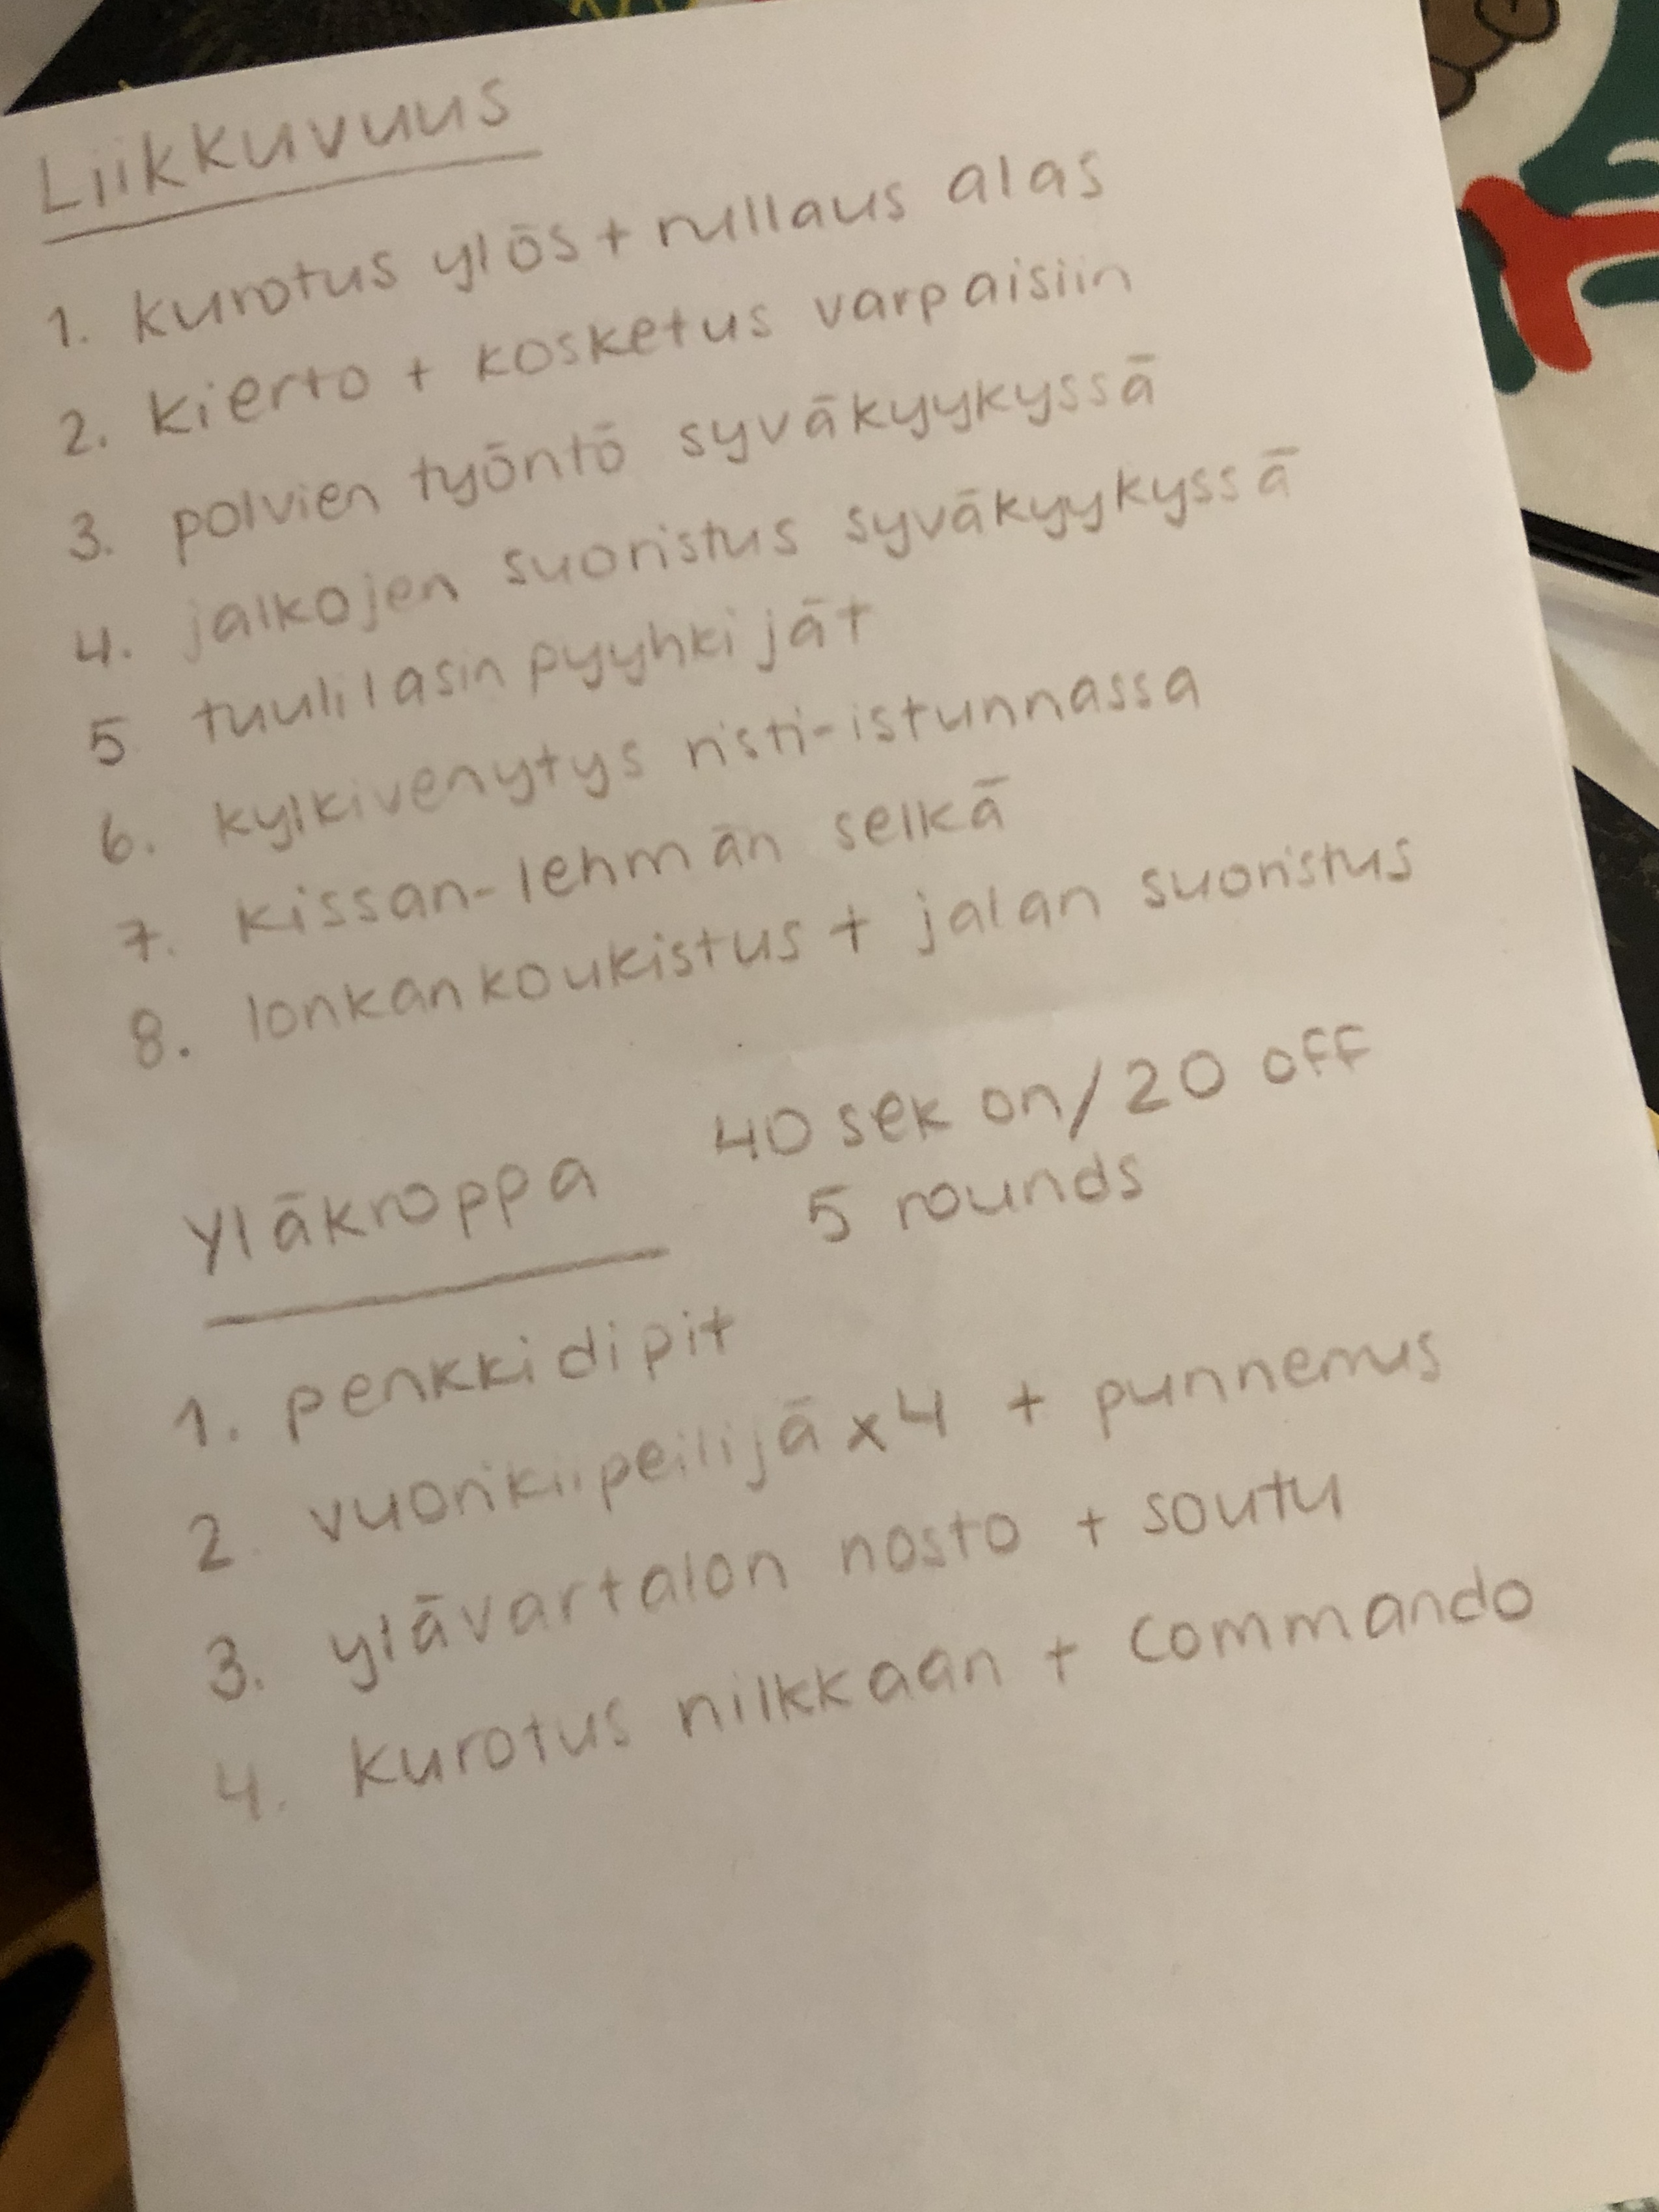 Liikkuvuus
1. kurotus ylös + rullaus alas
2. kierto + kosketus varpaisiin
3. polvien työntö syväkyykyssä
4. jalkojen suoristus syväkyykyssä
5 tuulilasinpyyhkijät
6. kylkivenytys risti-istunnassa
7. kissan-lehmän selkä
8. lonkankoukistus + jalan suoristus
Yläkroppa 40 sek on/20 off
5 rounds
1. penkkidipit
2. vuorikiipeilijä x4 + punnerrus
3. ylävartalon nosto + soutu
4. kurotus nilkkaan + commando